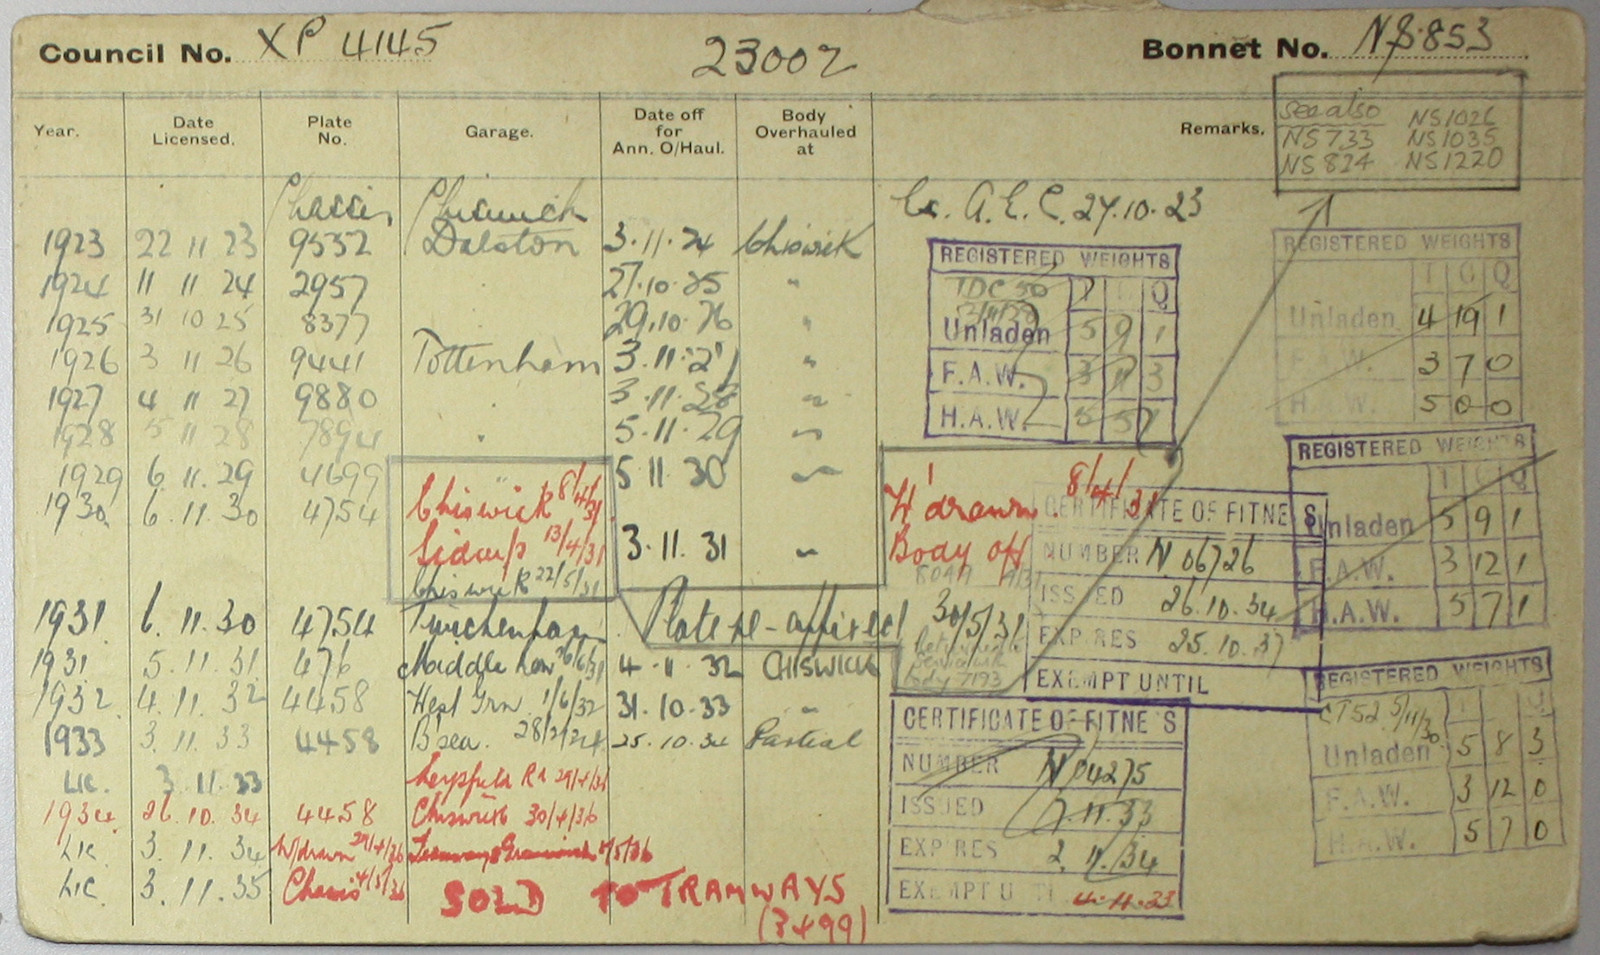 Council No. XP 4145 23002 Bonnet No. NS 853
see also NS1026
NS733 NS1035
NS824 NS1220
Year. Date Licensed. Plate No. Garage. Date off for Ann. O/Haul. Body Overhauled at Remarks.
Chassis Chiswick Ex. A.E.C. 27.10.23
1923 22 11 23 9532 Dalston 3.11.24 Chiswick
1924 11 11 24 2957 27.10.25 "
1925 31 10 25 8377 29.10.26 "
1926 3 11 26 9441 Tottenham 3.11.27 "
1927 4 11 27 9880 3.11.28 "
1928 5 11 28 7894 " 5.11.29 "
1929 6.11.29 4699 5.11.30 "
1930 6.11.30 4754 Chiswick R 8/4/31
Sidcup 13/4/31 3.11.31 "
Chiswick R 22/5/31
W'drawn 8/4/31
Body off
1931 6.11.30 4754 Twickenham Plate re-affixed 30/5/31
1931 5.11.31 476 Middle Row 26/6/31 4.11.32 CHISWICK
body 7193
1932 4.11.32 4458 West Grn 1/6/32 31.10.33 "
1933 3.11.33 4458 B'sea. 25.10.34 Partial
Lic. 3.11.33
1934 26.10.34 4458 Chiswick 30/4/36
Lic 3.11.34 W/drawn 29/4/36 5/36
Lic 3.11.35 Chassis 4/5/36 SOLD TO TRAMWAYS
(3499)
REGISTERED WEIGHTS
TDC 50 T C Q
Unladen 5 9 1
F.A.W. 3 11 3
H.A.W. 5 5 1
REGISTERED WEIGHTS
T C Q
Unladen 4 19 1
F.A.W. 3 7 0
H.A.W. 5 0 0
REGISTERED WEIGHTS
T C Q
Unladen 5 9 1
F.A.W. 3 12 1
H.A.W. 5 7 1
CERTIFICATE OF FITNESS
NUMBER N 06726
ISSUED 26.10.34
EXPIRES 25.10.37
EXEMPT UNTIL
REGISTERED WEIGHTS
CT52 5/11/30 T C Q
Unladen 5 8 3
F.A.W. 3 12 0
H.A.W. 5 7 0
CERTIFICATE OF FITNESS
NUMBER N 04275
ISSUED 7.11.33
EXPIRES 2.11.34
EXEMPT UNTIL 4.11.33